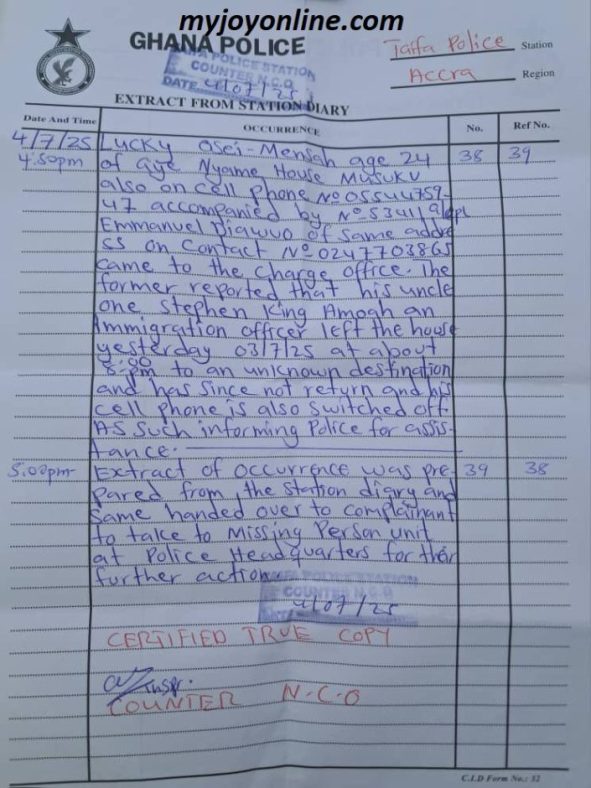 myjoyonline.com
GHANA POLICE
Taifa Police Station
Accra Region
POLICE STATION
COUNTER N.C.O
DATE 4/07/25
EXTRACT FROM STATION DIARY
Date And Time OCCURRENCE No. Ref No.
4/7/25 Lucky Osei-Mensah age 24 38 39
4:50pm of Gye Nyame House MUSUKU
also on cell phone Nº 05544759-
47 accompanied by Nº 53411 G/Cpl
Emmanuel Diawuo of same addre
ss on contact Nº 0247703865
came to the charge office. The
former reported that his uncle
one Stephen King Amoah an
Immigration officer left the house
yesterday 03/7/25 at about
8:00pm to an unknown destination
and has since not return and his
cell phone is also switched off.
As such informing Police for assis-
tance.
5:00pm Extract of occurrence was pre- 39 38
pared from the station diary and
same handed over to complainant
to take to Missing Person unit
at Police Headquarters for their
further action.
TAIFA POLICE STATION
COUNTER N.C.O
4/07/25
CERTIFIED TRUE COPY
Inspr.
COUNTER N.C.O
C.I.D Form No.: 32